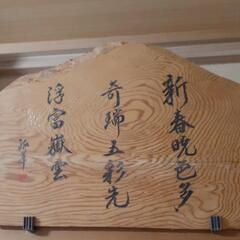 新春晩色多
奇瑞五彩先
浮富嶽雲